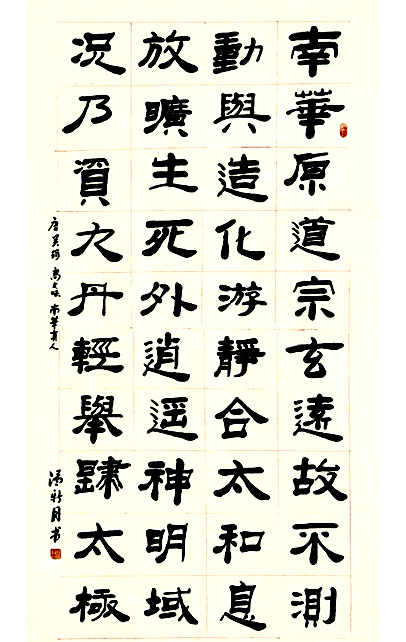 南華原道宗玄遠故不測
動與造化游靜合太和息
放曠生死外逍遥神明域
況乃資九丹輕舉歸太極
唐吴筠 高士咏 南華真人
新月书